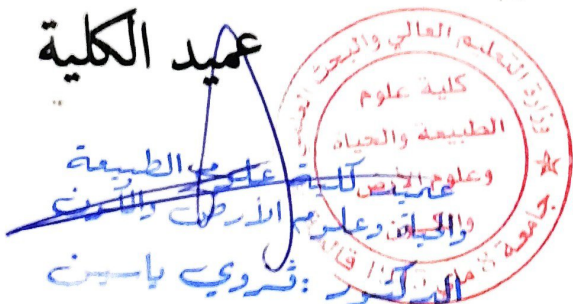 عميد الكلية
وزارة التعليم العالي والبحث العلمي
كلية علوم
الطبيعة والحياة
وعلوم الأرض
والكون
جامعة 8 ماي
عميد كلية علوم الطبيعة
والحياة وعلوم الأرض والكون
الدكتور : ثروي ياسين